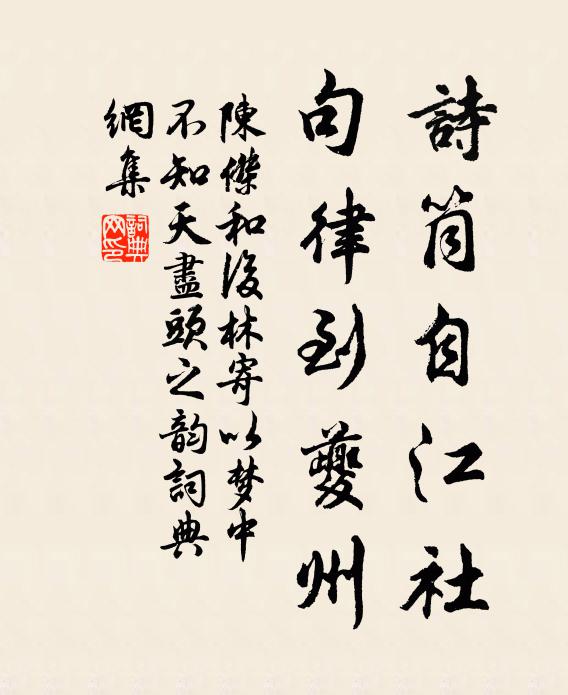 詩筒自江社
句律到夔州
陳傑和後林寄以梦中
不知天盡頭之韵詞典
網集
詞典網印